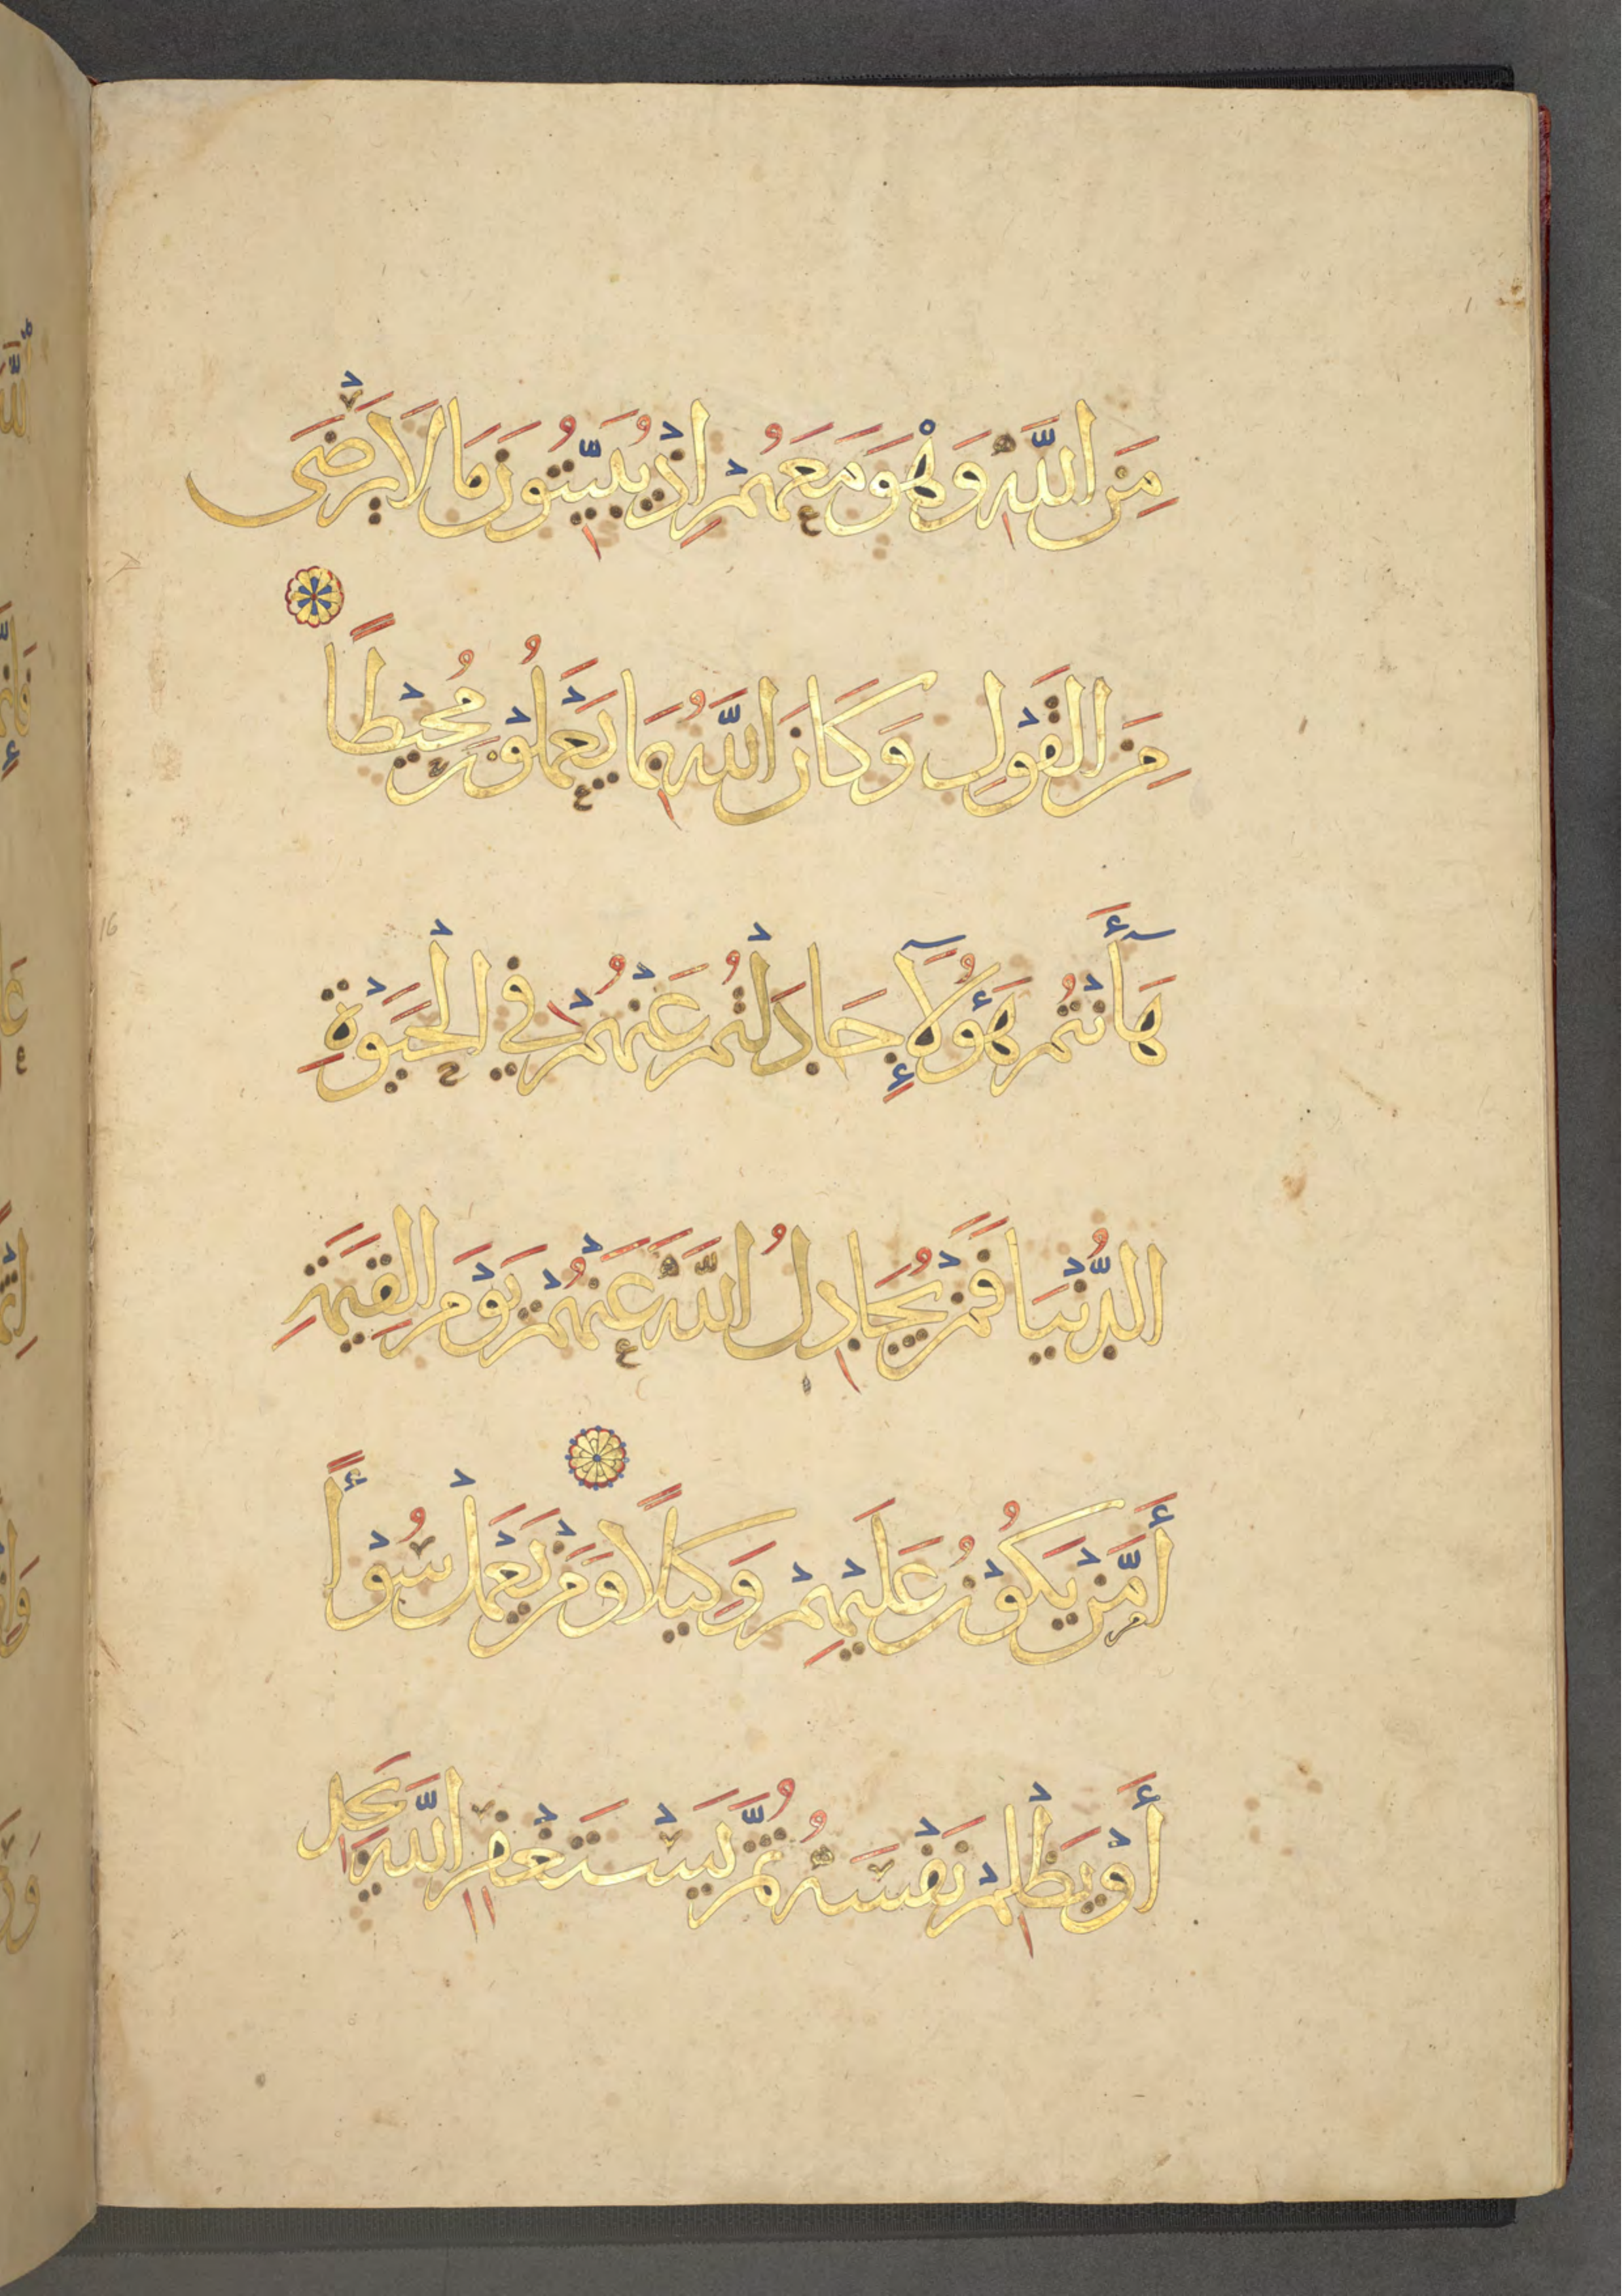 مِنَ اللَّهِ وَهْوَ مَعَهُمْ إِذْ يُبَيِّتُونَ مَا لَا يَرْضَى
مِنَ الْقَوْلِ وَكَانَ اللَّهُ بِمَا يَعْمَلُونَ مُحِيطًا
هَآأَنْتُمْ هَؤُلَآءِ جَادَلْتُمْ عَنْهُمْ فِي الْحَيَوٰةِ
الدُّنْيَا فَمَنْ يُجَادِلُ اللَّهَ عَنْهُمْ يَوْمَ الْقِيَمَةِ
أَمَّنْ يَكُونُ عَلَيْهِمْ وَكِيلًا وَمَنْ يَعْمَلْ سُوْأً
أَوْ يَظْلِمْ نَفْسَهُ ثُمَّ يَسْتَغْفِرِ اللَّهَ يَجِدِ
16